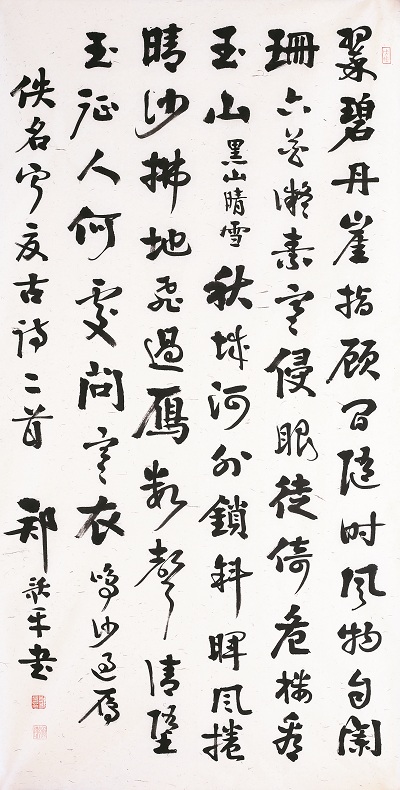 翠碧丹崖指顾间随时风物自阑
珊六花凝素寒侵眼徙倚危楼看
玉山黑山晴雪秋城河外鎖斜暉风捲
晴沙拂地飞過雁数声清堕
玉征人何处问寒衣鸣沙过雁
佚名宁夏古诗二首郑歌平书